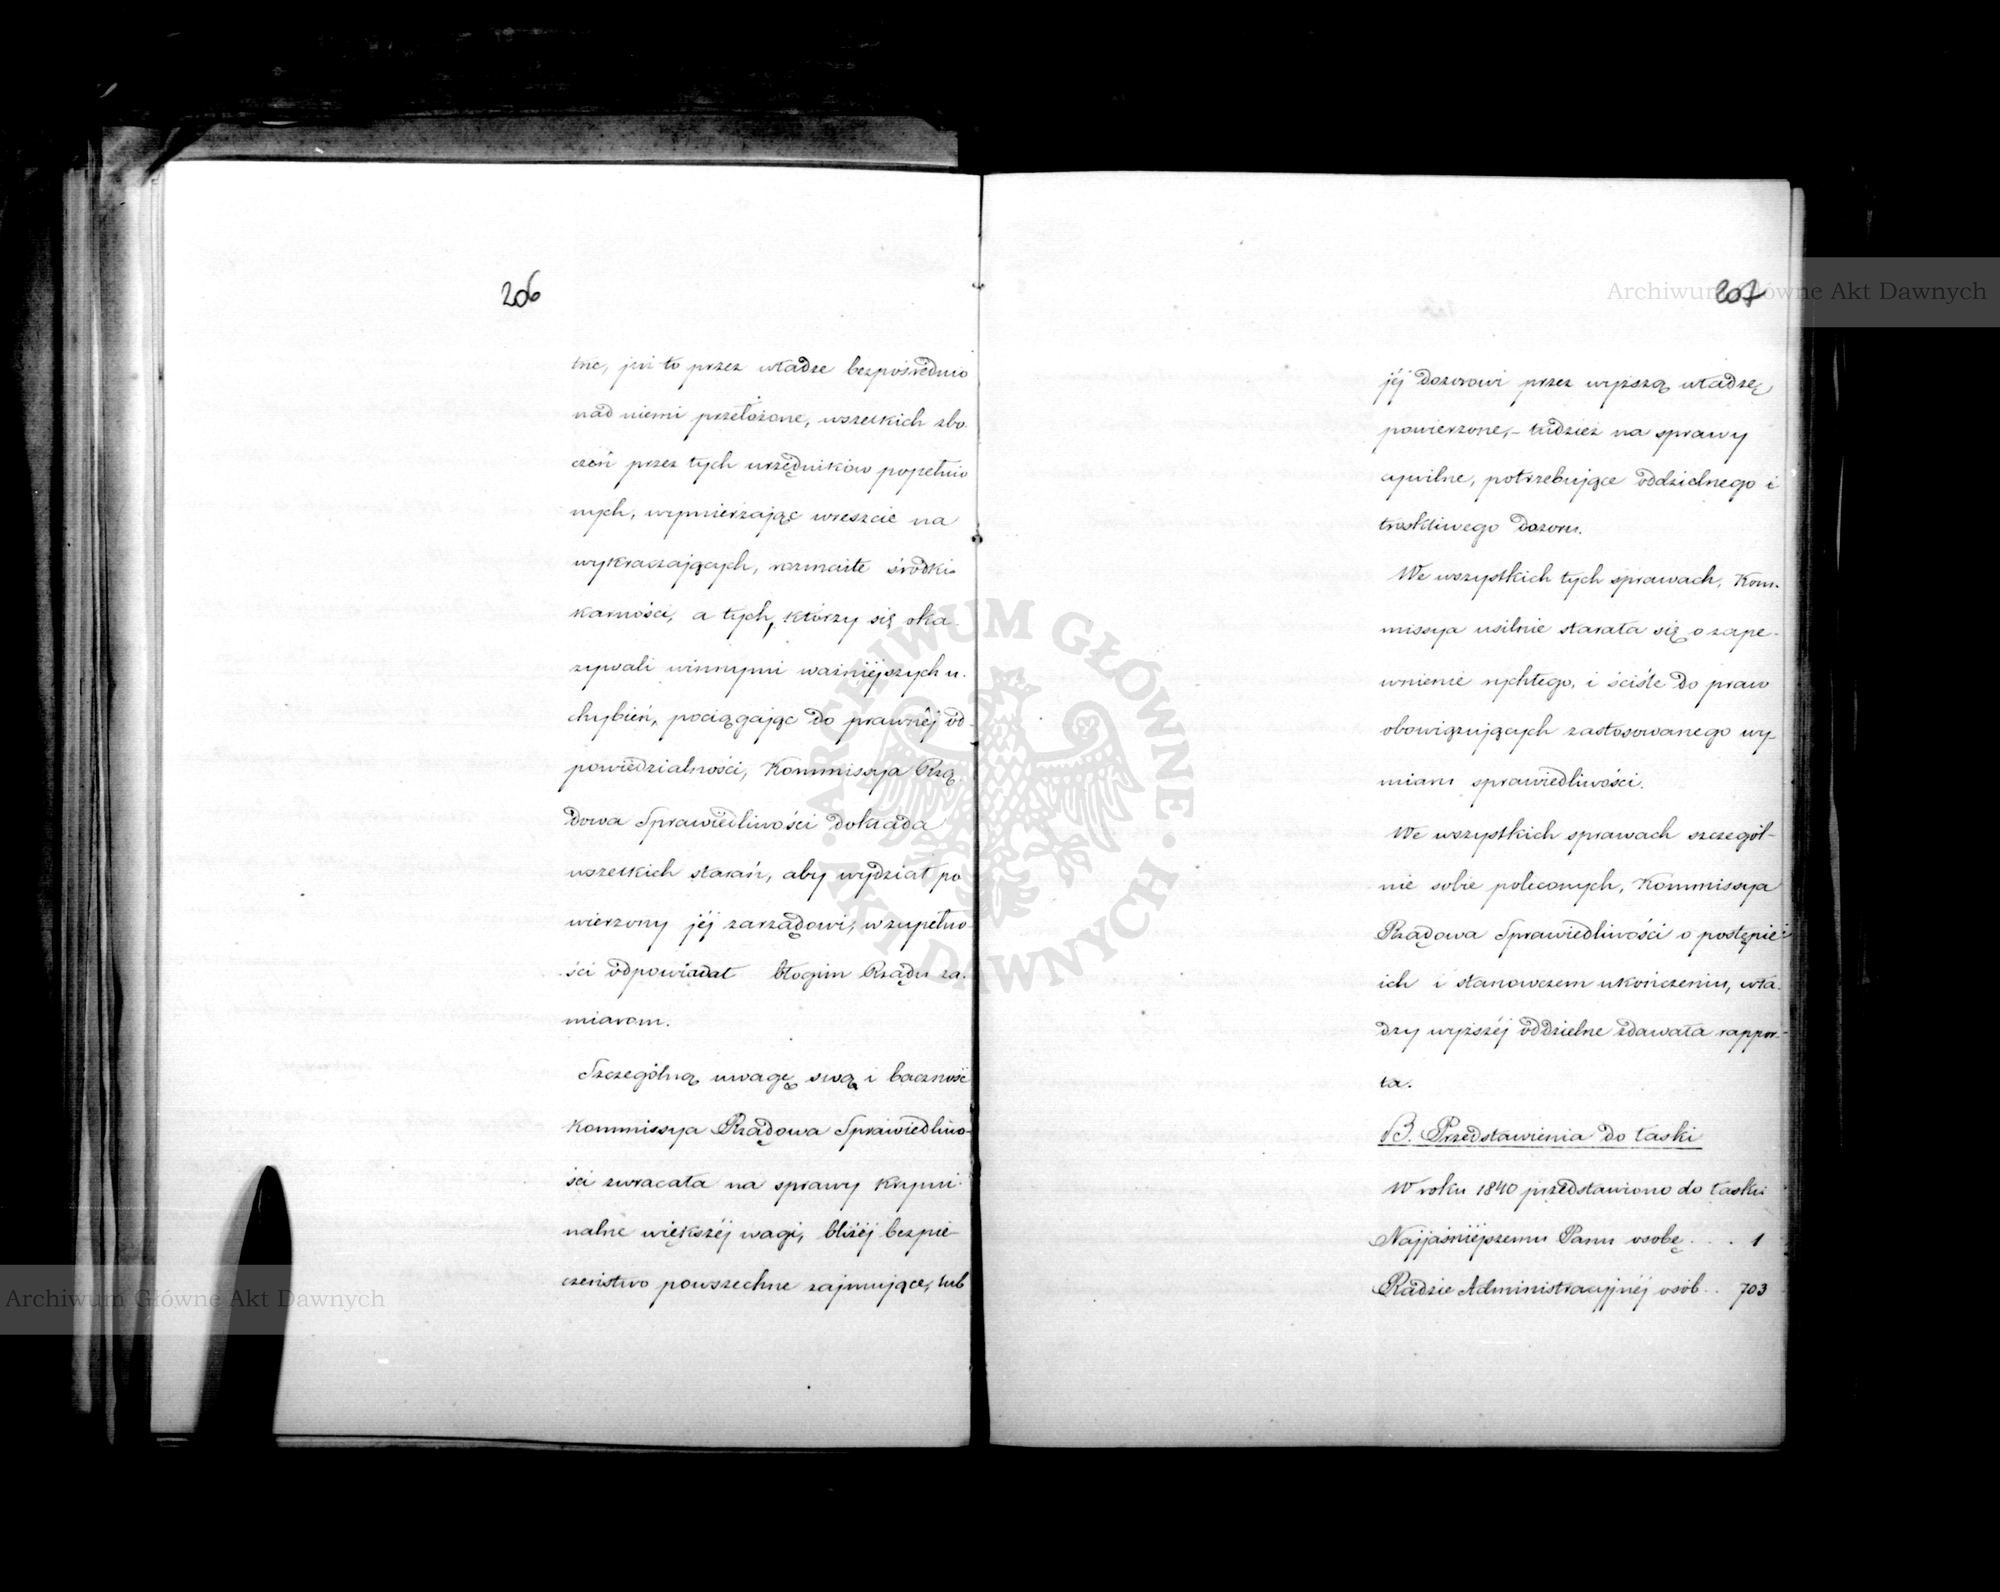 206
tne, już to przez władze bezpośrednio
nad niemi przełożone, wszelkich zbo
czeń przez tych urzędników popełnio
nych, wymierzając wreszcie na
wykraczających, rozmaite środki
karności, a tych, którzy się oka-
zywali winnymi ważniejszych u-
chybień, pociągając do prawnéj od-
powiedzialności, Kommissya Rzą-
dowa Sprawiedliwości dokłada
wszelkich starań, aby wydział po
wierzony jéj zarządowi, w zupełno-
ści odpowiadał błogim Rządu za-
miarom.
Szczególną uwagę swą i baczność
Kommissya Rządowa Sprawiedliwo-
ści zwracała na sprawy krymi-
nalne większéj wagi, bliżéj bezpie-
czeństwo powszechne zajmujące, lub
207
jéj dozorowi przez wyższą władzę,
powierzone,- tudzież na sprawy
cywilne, potrzebujące oddzielnego i
troskliwego dozoru.
We wszystkich tych sprawach, Kom-
missya usilnie starała się o zape-
wnienie rychłego, i ściśle do praw
obowiązujących zastosowanego wy-
miaru sprawiedliwości.
We wszystkich sprawach szczegól-
nie sobie poleconych, Kommissya
Rządowa Sprawiedliwości o postępie
ich i stanowczem ukończeniu, wła-
dzy wyższéj oddzielne zdawała rappor-
ta.
B. Przedstawienia do łaski
W roku 1840 przedstawiono do łaski
Najjaśniéjszemu Panu osobę . . . 1
Radzie Administracyjnéj osób . . 703
Archiwum Główne Akt Dawnych
Archiwum Główne Akt Dawnych
ARCHIWUM GŁÓWNE · AKT DAWNYCH ·